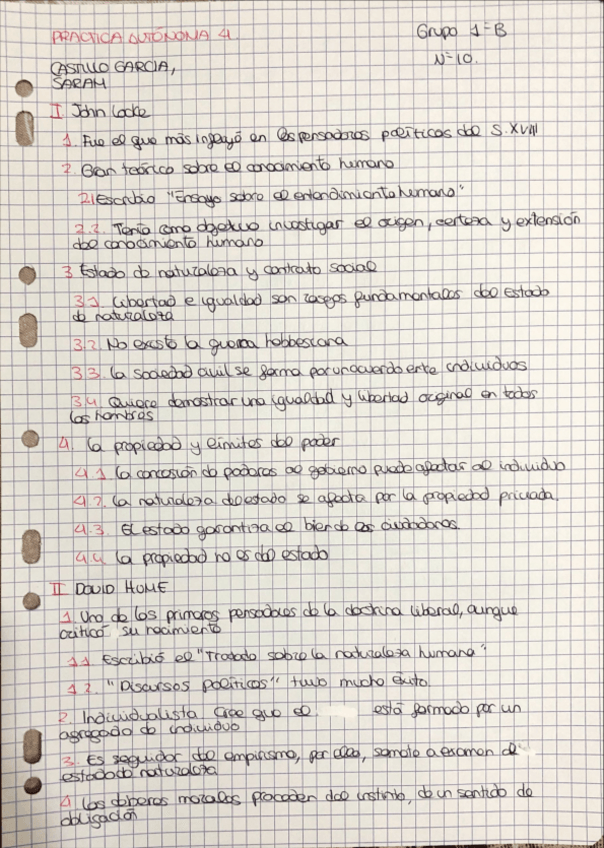 PRACTICA AUTÓNOMA 4.
Grupo 1=B
Nº10.
CASTILLO GARCIA,
SARAH
I John Locke
1. Fue el que más influyó en los pensadores políticos del S.XVIII
2. Gran teórico sobre el conocimiento humano
2.1 Escribio "Ensayo sobre el entendimiento humano"
2.2. Tenía como objetivo investigar el origen, certeza y extensión
del conocimiento humano
3 Estado de naturaleza y contrato social
3.1 Libertad e igualdad son rasgos fundamentales del estado
de naturaleza
3.2. No existe la guerra hobbesiana
3.3. La sociedad civil se forma por un acuerdo ente individuos
3.4. Quiere demostrar una igualdad y libertad original en todos
los hombres
4. La propiedad y límites del poder
4.1 La concesión de poderes al gobierno puede afectar al individuo
4.2. La naturaleza del estado se afecta por la propiedad privada.
4.3. El estado garantiza el bien de los ciudadanos.
4.4 La propiedad no es del estado
II DAVID HOME
1. Uno de los primeros pensadores de la doctrina liberal, aunque
criticó su nacimiento
1.1 Escribió el "Tratado sobre la naturaleza humana"
1.2. "Discursos políticos" tuvo mucho éxito.
2. Individualista cree que el está formado por un
agregado de individuo
3. Es seguidor del empirismo, por ello, somete a examen el
estado de naturaleza
4 Los deberes morales proceden del instinto, de un sentido de
obligación